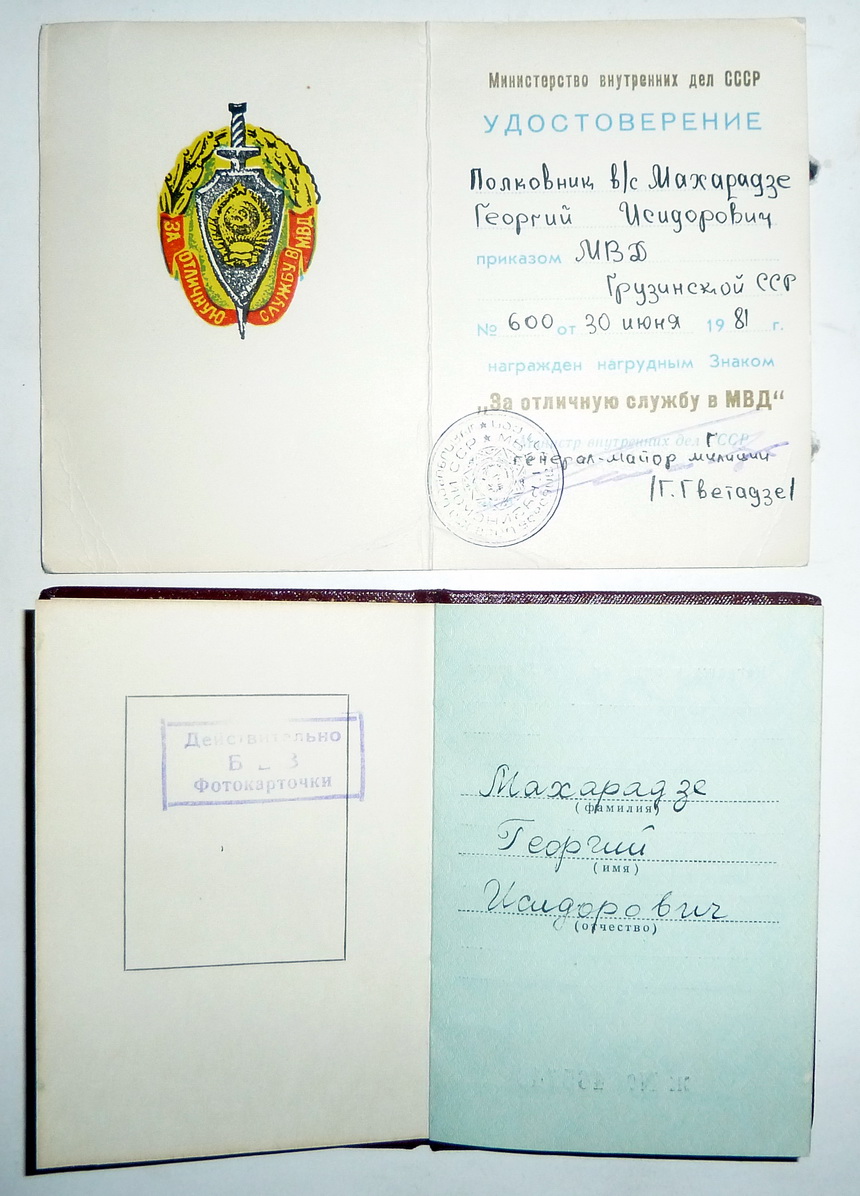 ЗА ОТЛИЧНУЮ СЛУЖБУ В МВД
Министерство внутренних дел СССР
УДОСТОВЕРЕНИЕ
Полковник в/с Махарадзе
Георгий Исидорович
приказом МВД
Грузинской ССР
№ 600 от 30 июня 1981 г.
награжден нагрудным Знаком
„За отличную службу в МВД“
Министр внутренних дел СССР
генерал-майор милиции
/Г. Гветадзе/
Действительно
БЕЗ
Фотокарточки
Махарадзе
(фамилия)
Георгий
(имя)
Исидорович
(отчество)